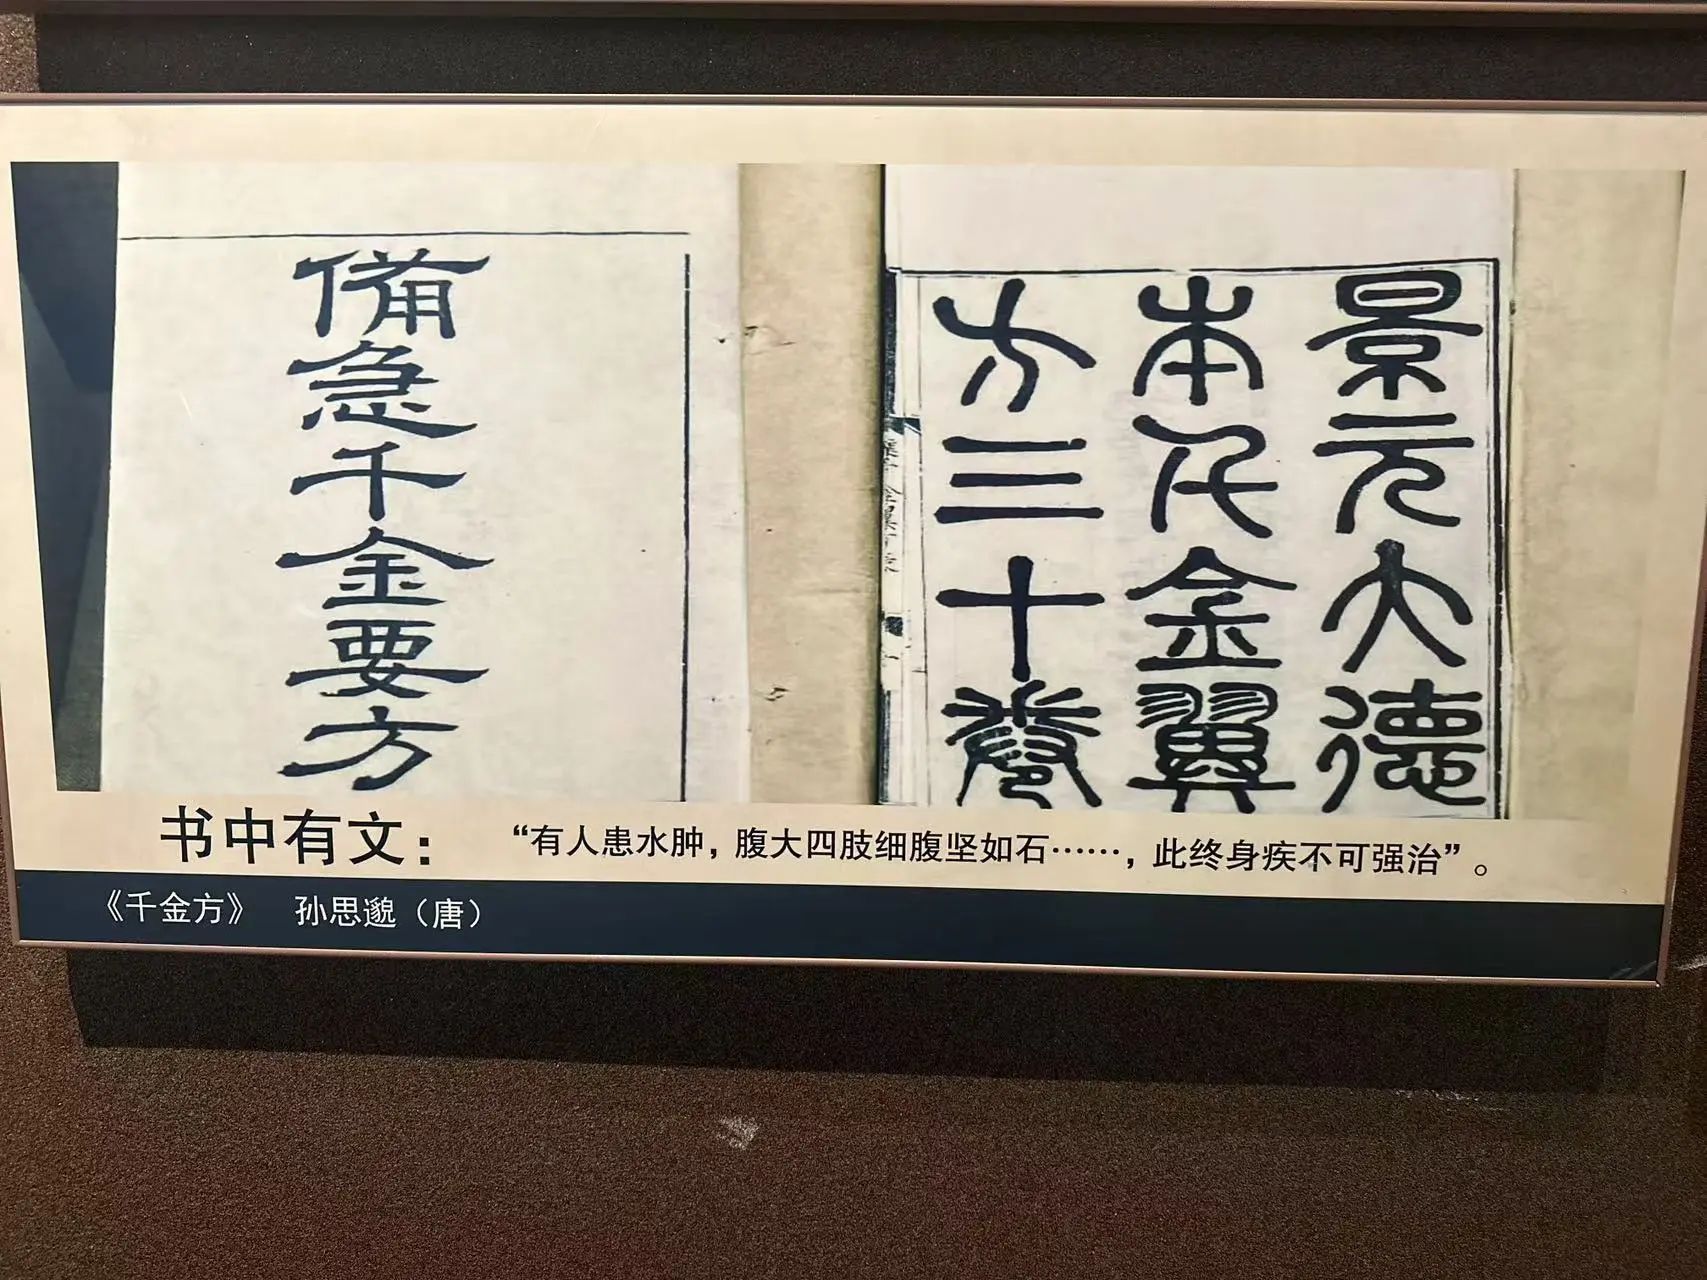 備急千金要方
景元大德
本千金翼
方三十卷
书中有文： “有人患水肿，腹大四肢细腹坚如石……，此终身疾不可强治”。
《千金方》 孙思邈（唐）